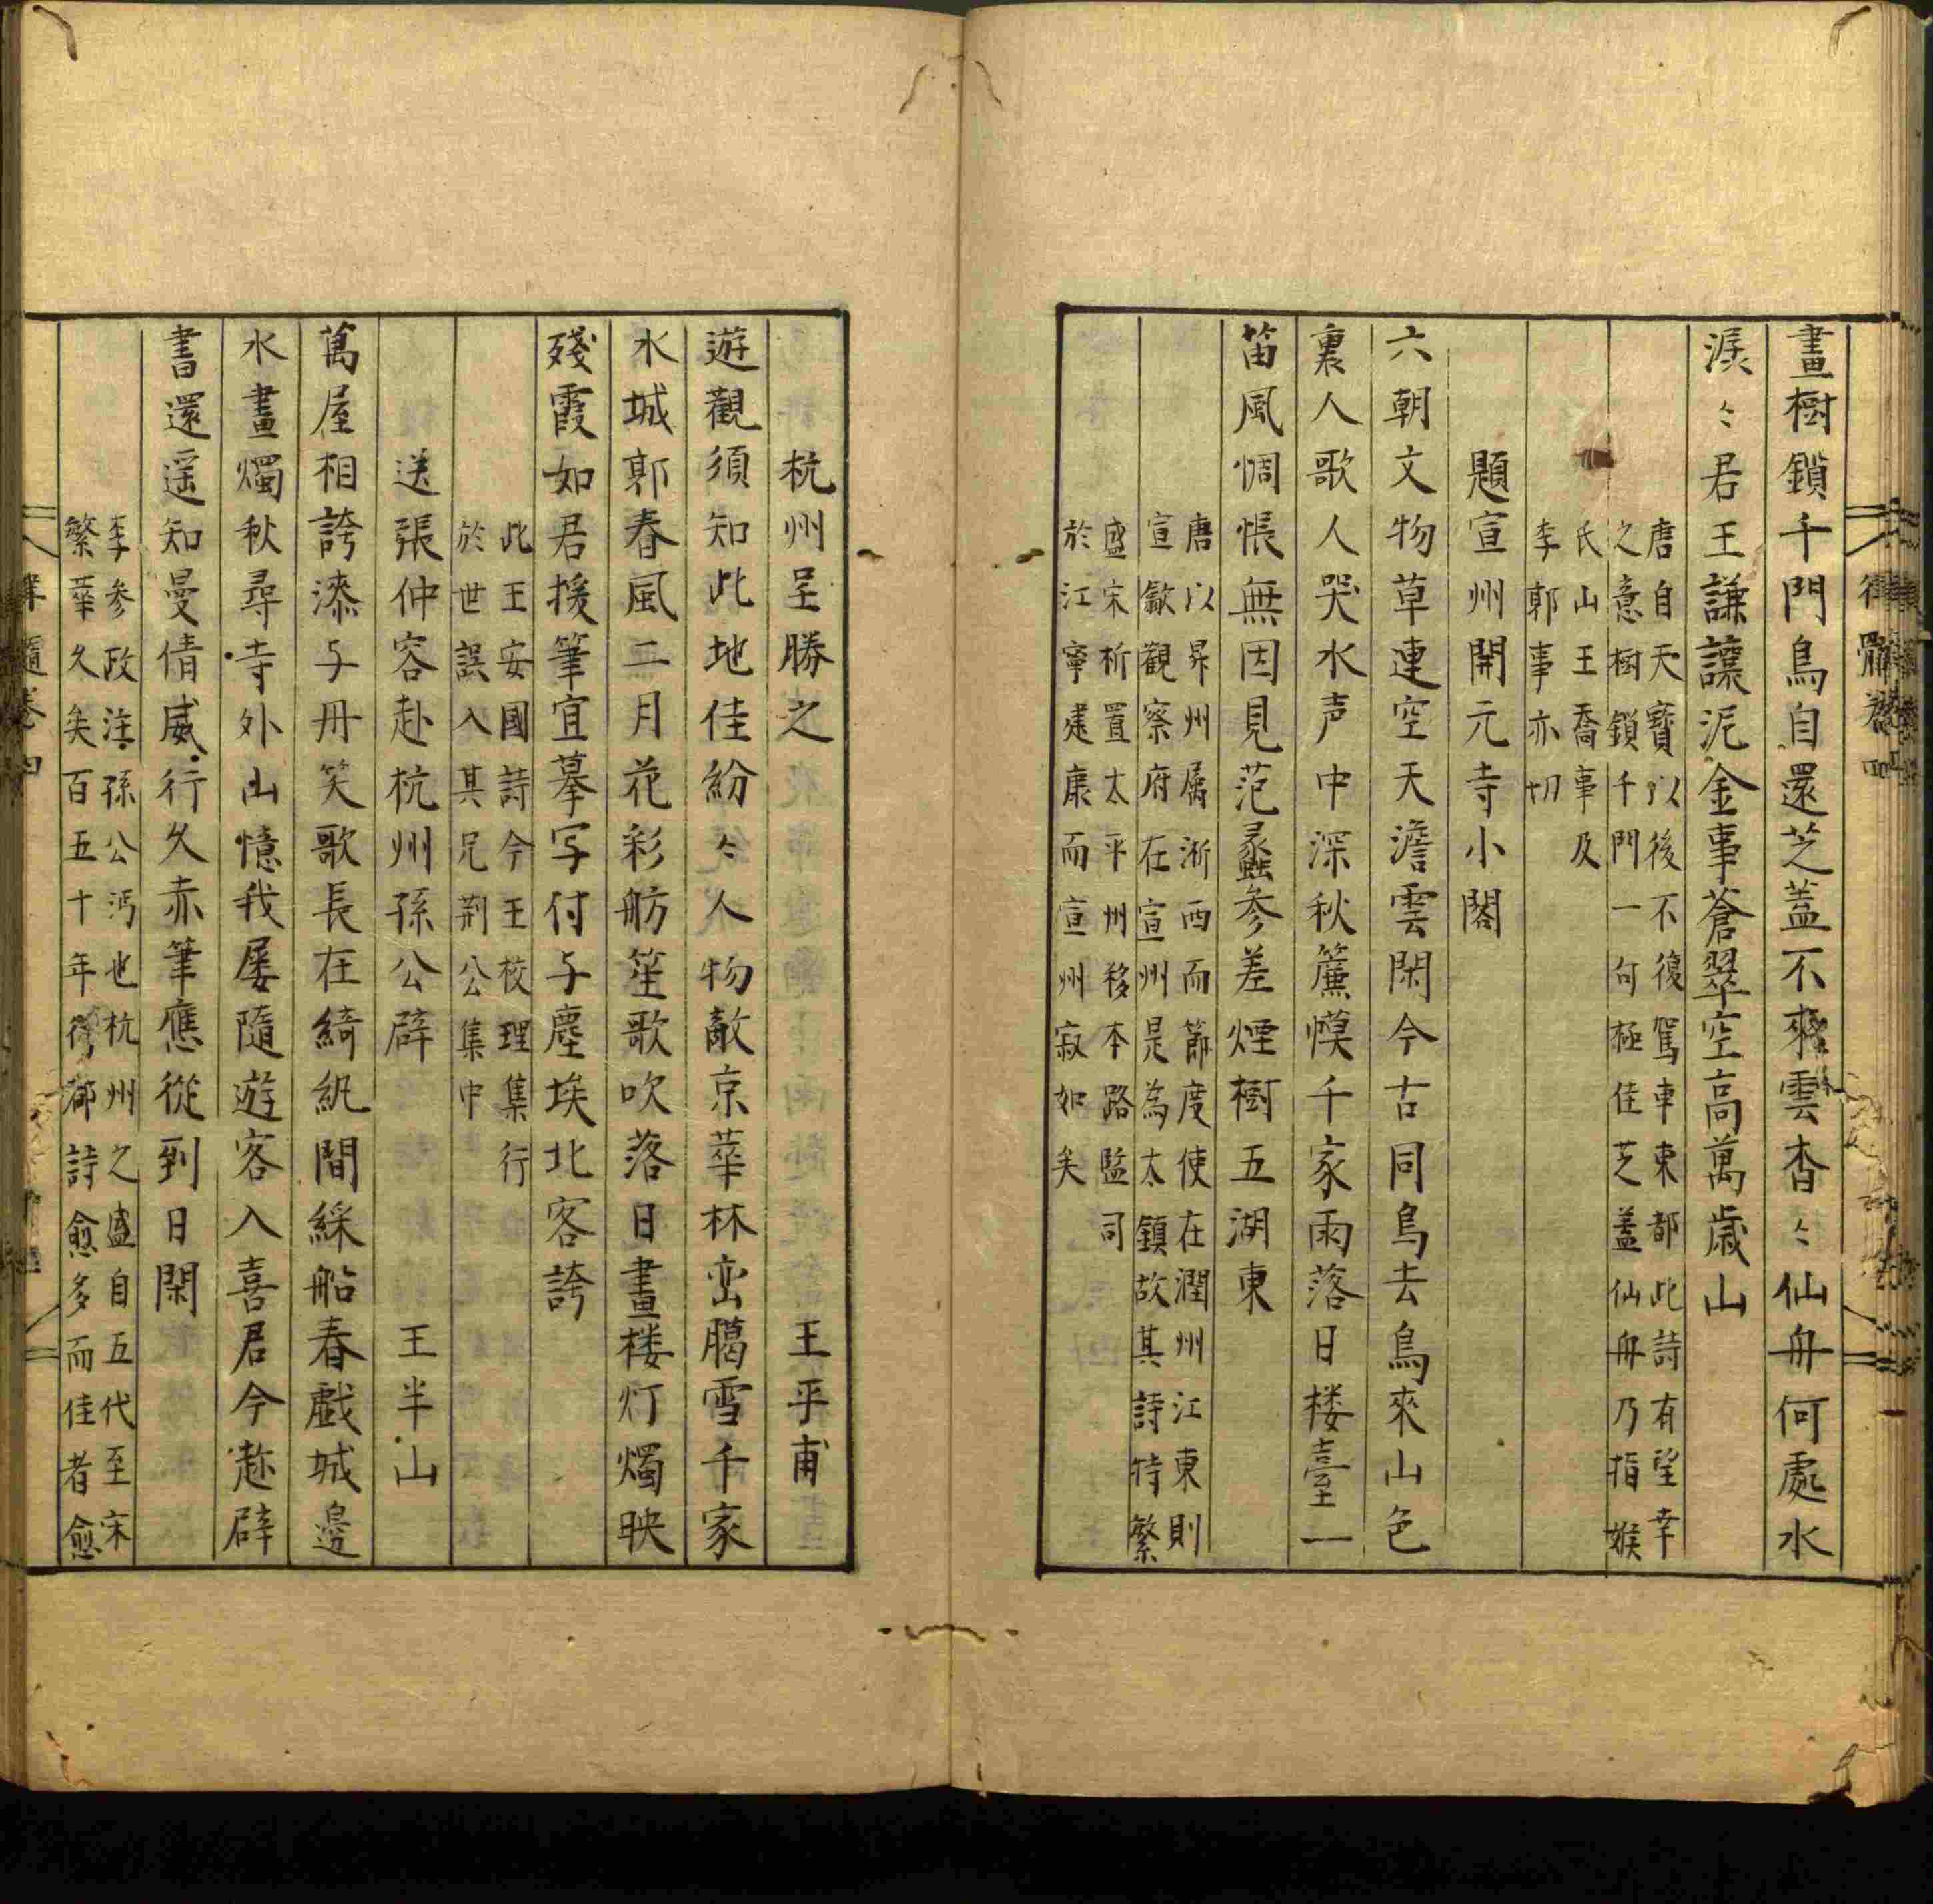 畫樹鎖千門鳥自還芝蓋不來雲杳〻仙舟何處水
潺〻君王謙讓泥金事蒼翠空高萬歲山
唐自天寶以後不復駕車東都此詩有望幸
之意樹鎖千門一句極佳芝蓋仙舟乃指緱
氏山王喬事及
李郭事亦切
題宣州開元寺小閣
六朝文物草連空天澹雲閑今古同鳥去鳥來山色
裏人歌人哭水声中深秋簾幙千家雨落日楼臺一
笛風惆悵無因見范蠡參差煙樹五湖東
唐以昇州属淅西而節度使在潤州江東則
宣歙觀察府在宣州是為太鎮故其詩特繁
盛宋析置太平州移本路監司
於江寧建康而宣州寂如矣
律髓卷四
杭州呈勝之　王平甫
遊觀須知此地佳紛〻人物敵京華林峦臈雪千家
水城郭春風二月花彩舫笙歌吹落日畫楼灯燭映
殘霞如君援筆宜摹写付与塵埃北客誇
此王安國詩今王校理集行
於世誤入其兄荆公集中
送張仲容赴杭州孫公辟　王半山
萬屋相誇漆与丹笑歌長在綺紈間綵船春戲城邊
水畫燭秋尋寺外山憶我屡隨遊客入喜君今赴辟
書還遥知曼倩威行久赤筆應從到日閑
李参政注孫公沔也杭州之盛自五代至宋
繁華久矣百五十年行都詩愈多而佳者愈